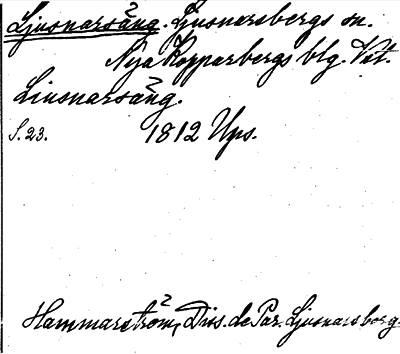 Ljusnarsäng. Ljusnarsbergs sn.
Nya Kopparbergs blg. Vst.
Liusnarsäng.
S. 23. 1812 Ups.
Hammarström, Diss. de Par. Ljusnarsberg.